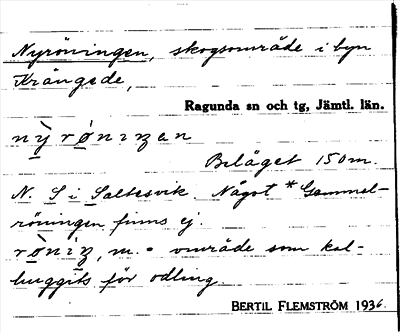 Nyröningen, skogsområde i byn
Krångede,
Ragunda sn och tg, Jämtl. län.
nỳrø̀nıŋen
Beläget 150 m.
N. S i Saltesvik. Något *Gammel-
röningen finns ej.
rø̀nıŋ, m. = område som kal-
huggits för odling
BERTIL FLEMSTRÖM 1936.